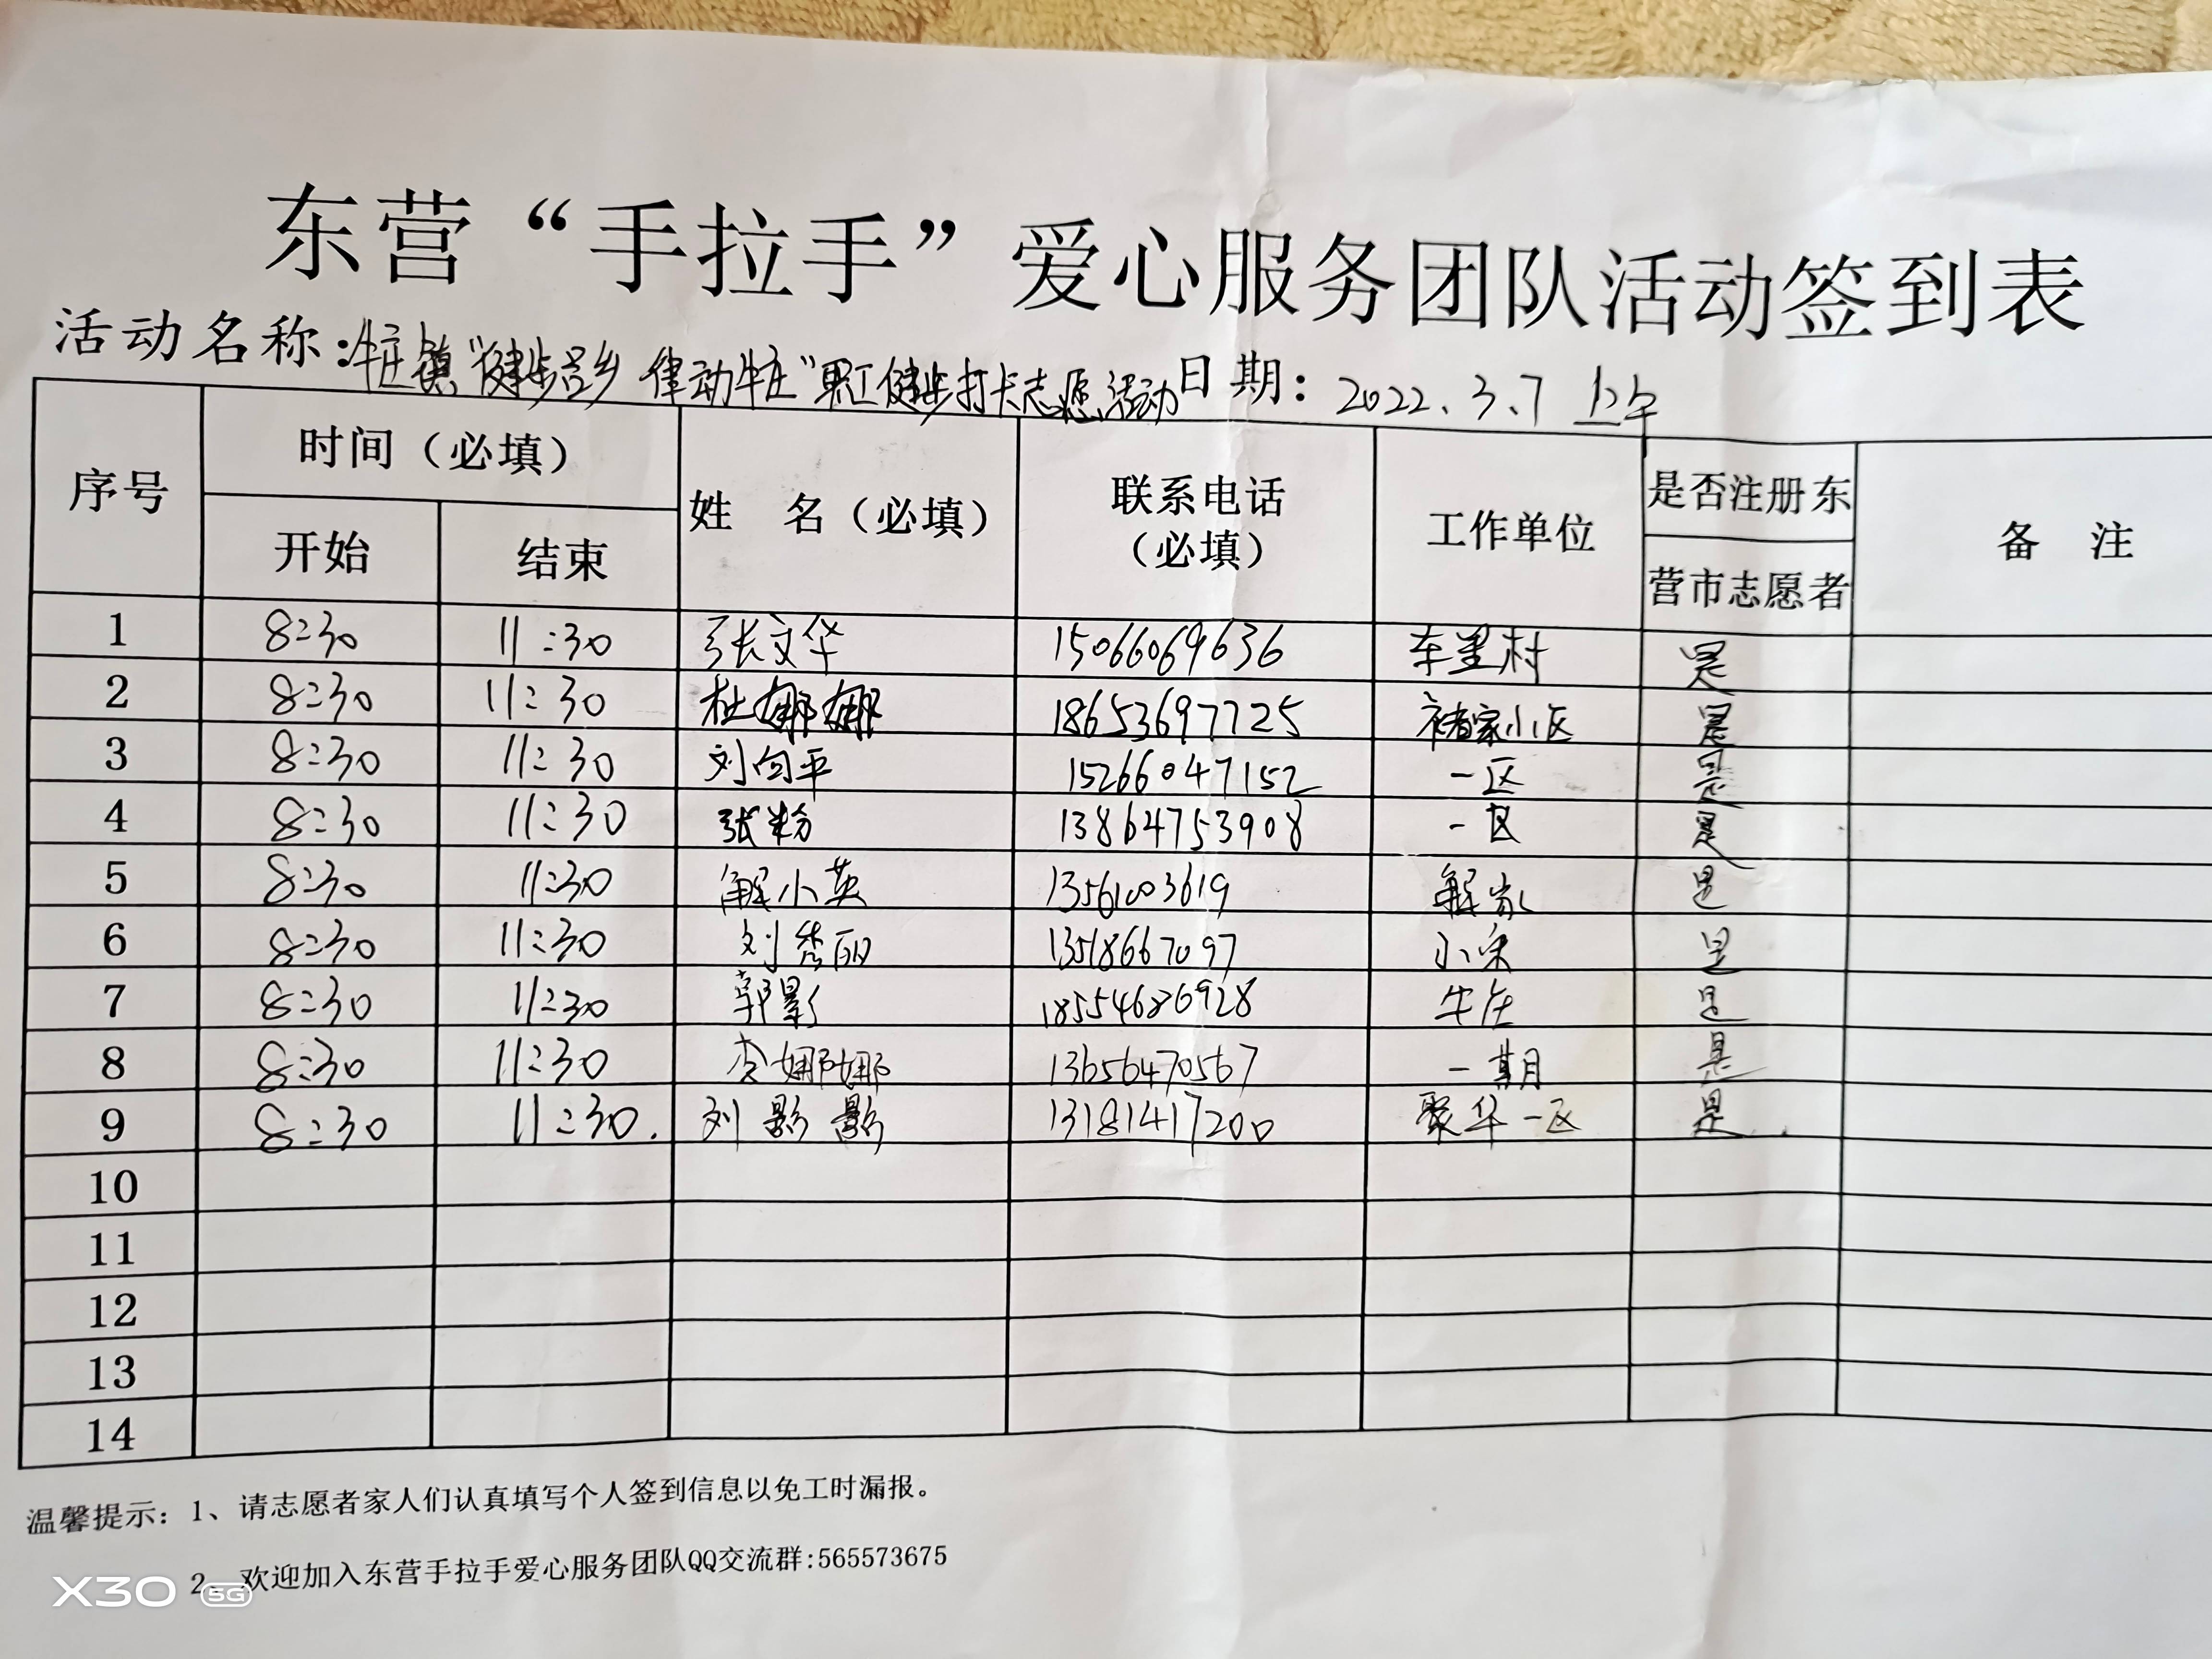 东营“手拉手”爱心服务团队活动签到表
活动名称:牛庄镇“健步吕乡 律动牛庄”职工健步打卡志愿活动 日期: 2022.3.7 上午
序号 时间（必填） 姓 名（必填） 联系电话（必填） 工作单位 是否注册东营市志愿者 备 注
开始 结束
1 8:30 11:30 张文华 15066069636 车里村 是
2 8:30 11:30 杜娜娜 18653697725 褚家小区 是
3 8:30 11:30 刘向平 15266047152 一区 是
4 8:30 11:30 张粉 13864753908 一区 是
5 8:30 11:30 解小英 13561003619 解家 是
6 8:30 11:30 刘秀丽 13518667097 小宋 是
7 8:30 11:30 郭影 牛庄 是
8 8:30 11:30 李娜娜 13656470567 一期 是
9 8:30 11:30. 刘影影 13181417200 聚华一区 是
10
11
12
13
14
温馨提示: 1、请志愿者家人们认真填写个人签到信息以免工时漏报。
2、欢迎加入东营手拉手爱心服务团队QQ交流群:565573675
X30 5G